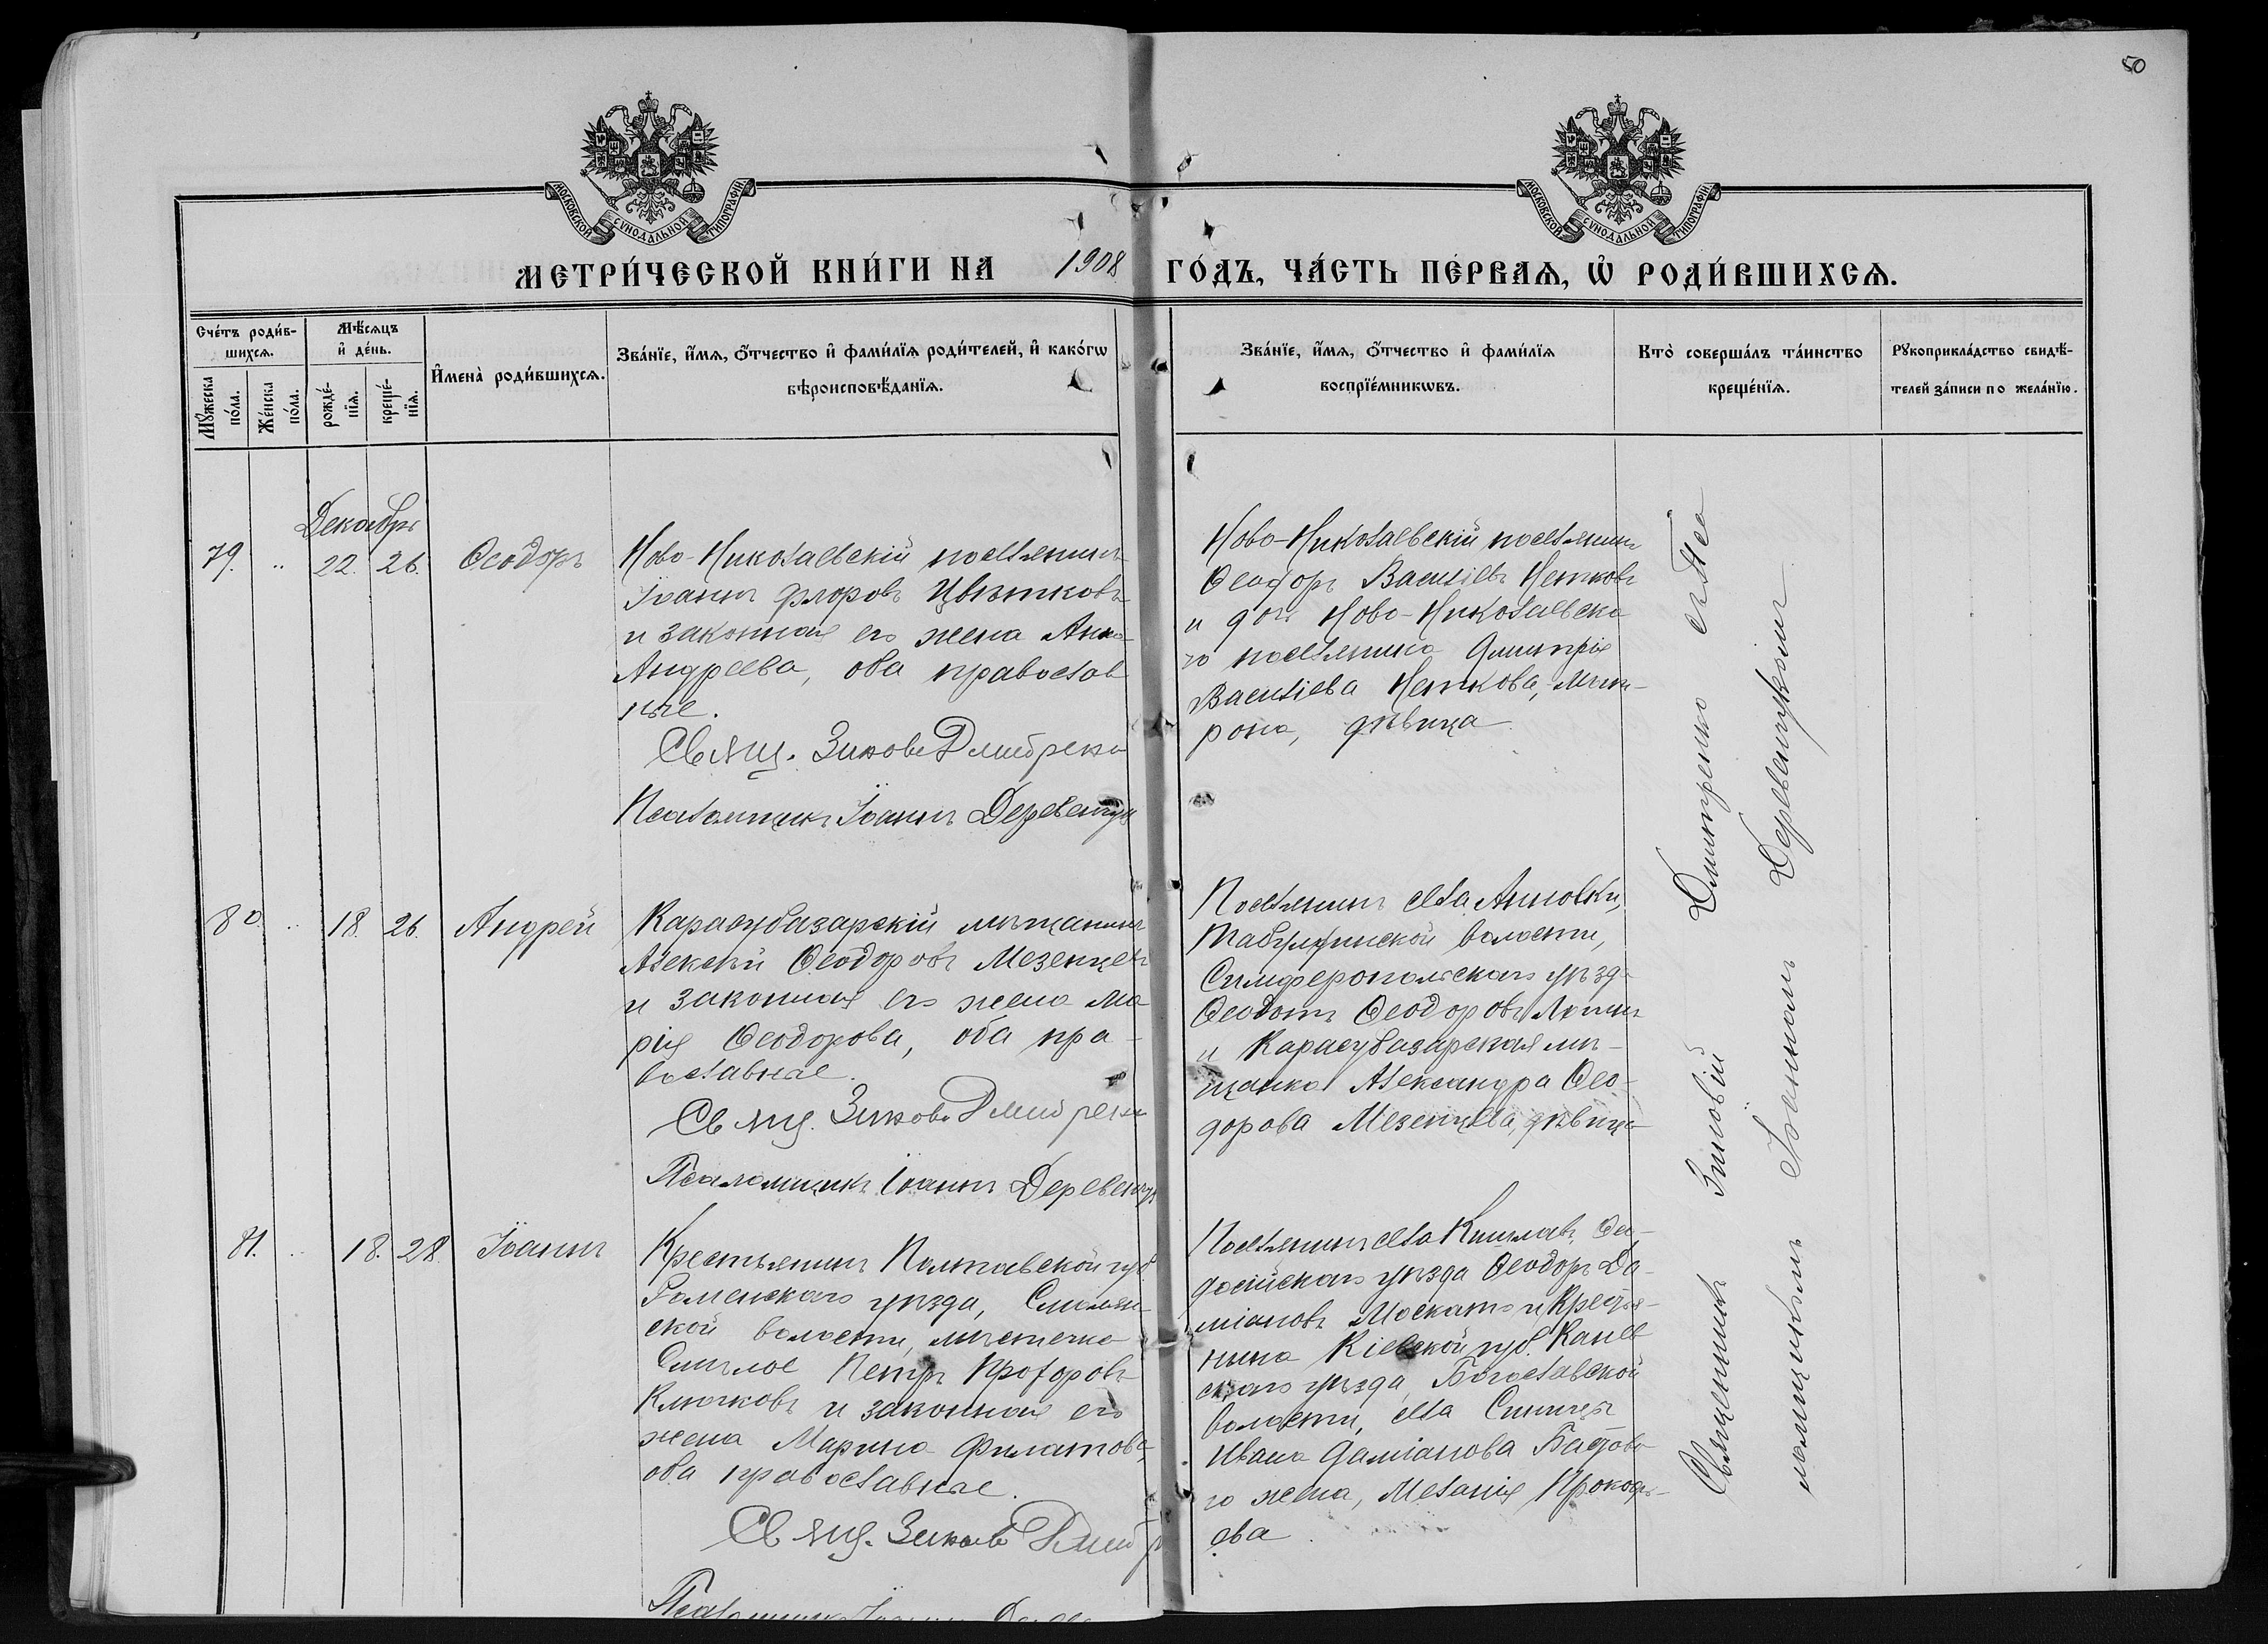 50
МОСКОВСКОЙ СѴНОДАЛЬНОЙ ТИПОГРАФІИ
МОСКОВСКОЙ СѴНОДАЛЬНОЙ ТИПОГРАФІИ
МЕТРИ́ЧЕСКОЙ КНИ́ГИ НА 1908 ГО́ДЪ, ЧА́СТЬ ПЕ́РВАѦ, Ѡ҆ РОДИ́ВШИХСѦ.
Сче́тъ роди́в-
шихсѧ.
Мꙋ́жеска
по́ла.
Же́нска
по́ла.
Мѣ́сѧцъ
и҆ де́нь.
рожде́-
нїѧ.
креще́-
нїѧ.
И҆мена̀ роди́вшихсѧ.
Зва́нїе, и҆́мѧ, ѻ҆́тчество и҆ фами́лїѧ роди́телей, и҆ како́гѡ
вѣроисповѣ́данїѧ.
Зва́нїе, и҆́мѧ, ѻ҆́тчество и҆ фами́лїѧ
воспрїе́мникѡвъ.
Кто̀ соверша́лъ та́инство
креще́нїѧ.
Рꙋкоприкла́дство свидѣ́-
телей за́писи по жела́нїю.
Декабрь
79. „ 22. 26. Ѳеодоръ
Ново-Николаевскій поселянинъ
Іоаннъ Флоровъ Цвѣтковъ
и законная его жена Анна
Андреева, оба православ
ные.
Свящ. Зиновій Дмитренко
Псаломщикъ Іоаннъ Деревенчу
Ново-Николаевскій поселянинъ
Ѳеодоръ Василіевъ Нетковъ
и дочь Ново-Николаевска
го поселянина Димитрія
Василіева Неткова, Мат-
рона, дѣвица
80. „ 18. 26. Андрей
Карасубазарскій мѣщанинъ
Алексѣй Ѳеодоровъ Мезенцевъ
и законная его жена Ма
рія Ѳеодорова, оба пра-
вославные.
Свящ. Зиновій Дмитренк
Псаломщикъ Іоаннъ Деревенчу
Поселянинъ села Анновки,
Табулдинской волости,
Симферопольскаго уѣзда
Ѳеодоровъ
и Карасубазарская мѣ-
щанка Александра Ѳео-
дорова Мезенцева, дѣвица
81. „ 18. 28. Іоаннъ
Крестьянинъ Полтавской губ.
Роменскаго уѣзда, Смѣлян-
ской волости, мѣстечка
Смѣлое Петръ Прохоровъ
Клочковъ и законная его
жена Марина Филатова,
оба православные.
Свящ. Зиновій Дмитр
Псаломщикъ Іоаннъ
Поселянинъ села Кишлавъ, Ѳео-
досійскаго уѣзда Ѳеодоръ Да-
міановъ и Крестья-
нина Кіевской губ. Канев
скаго уѣзда, Богославской
волости, села
Ивана Даміанова
го жена, Меланія Прокофь-
ева.
Священникъ Зиновій Дмитренко съ Пса
ломщикомъ Іоанномъ Деревенчукомъ